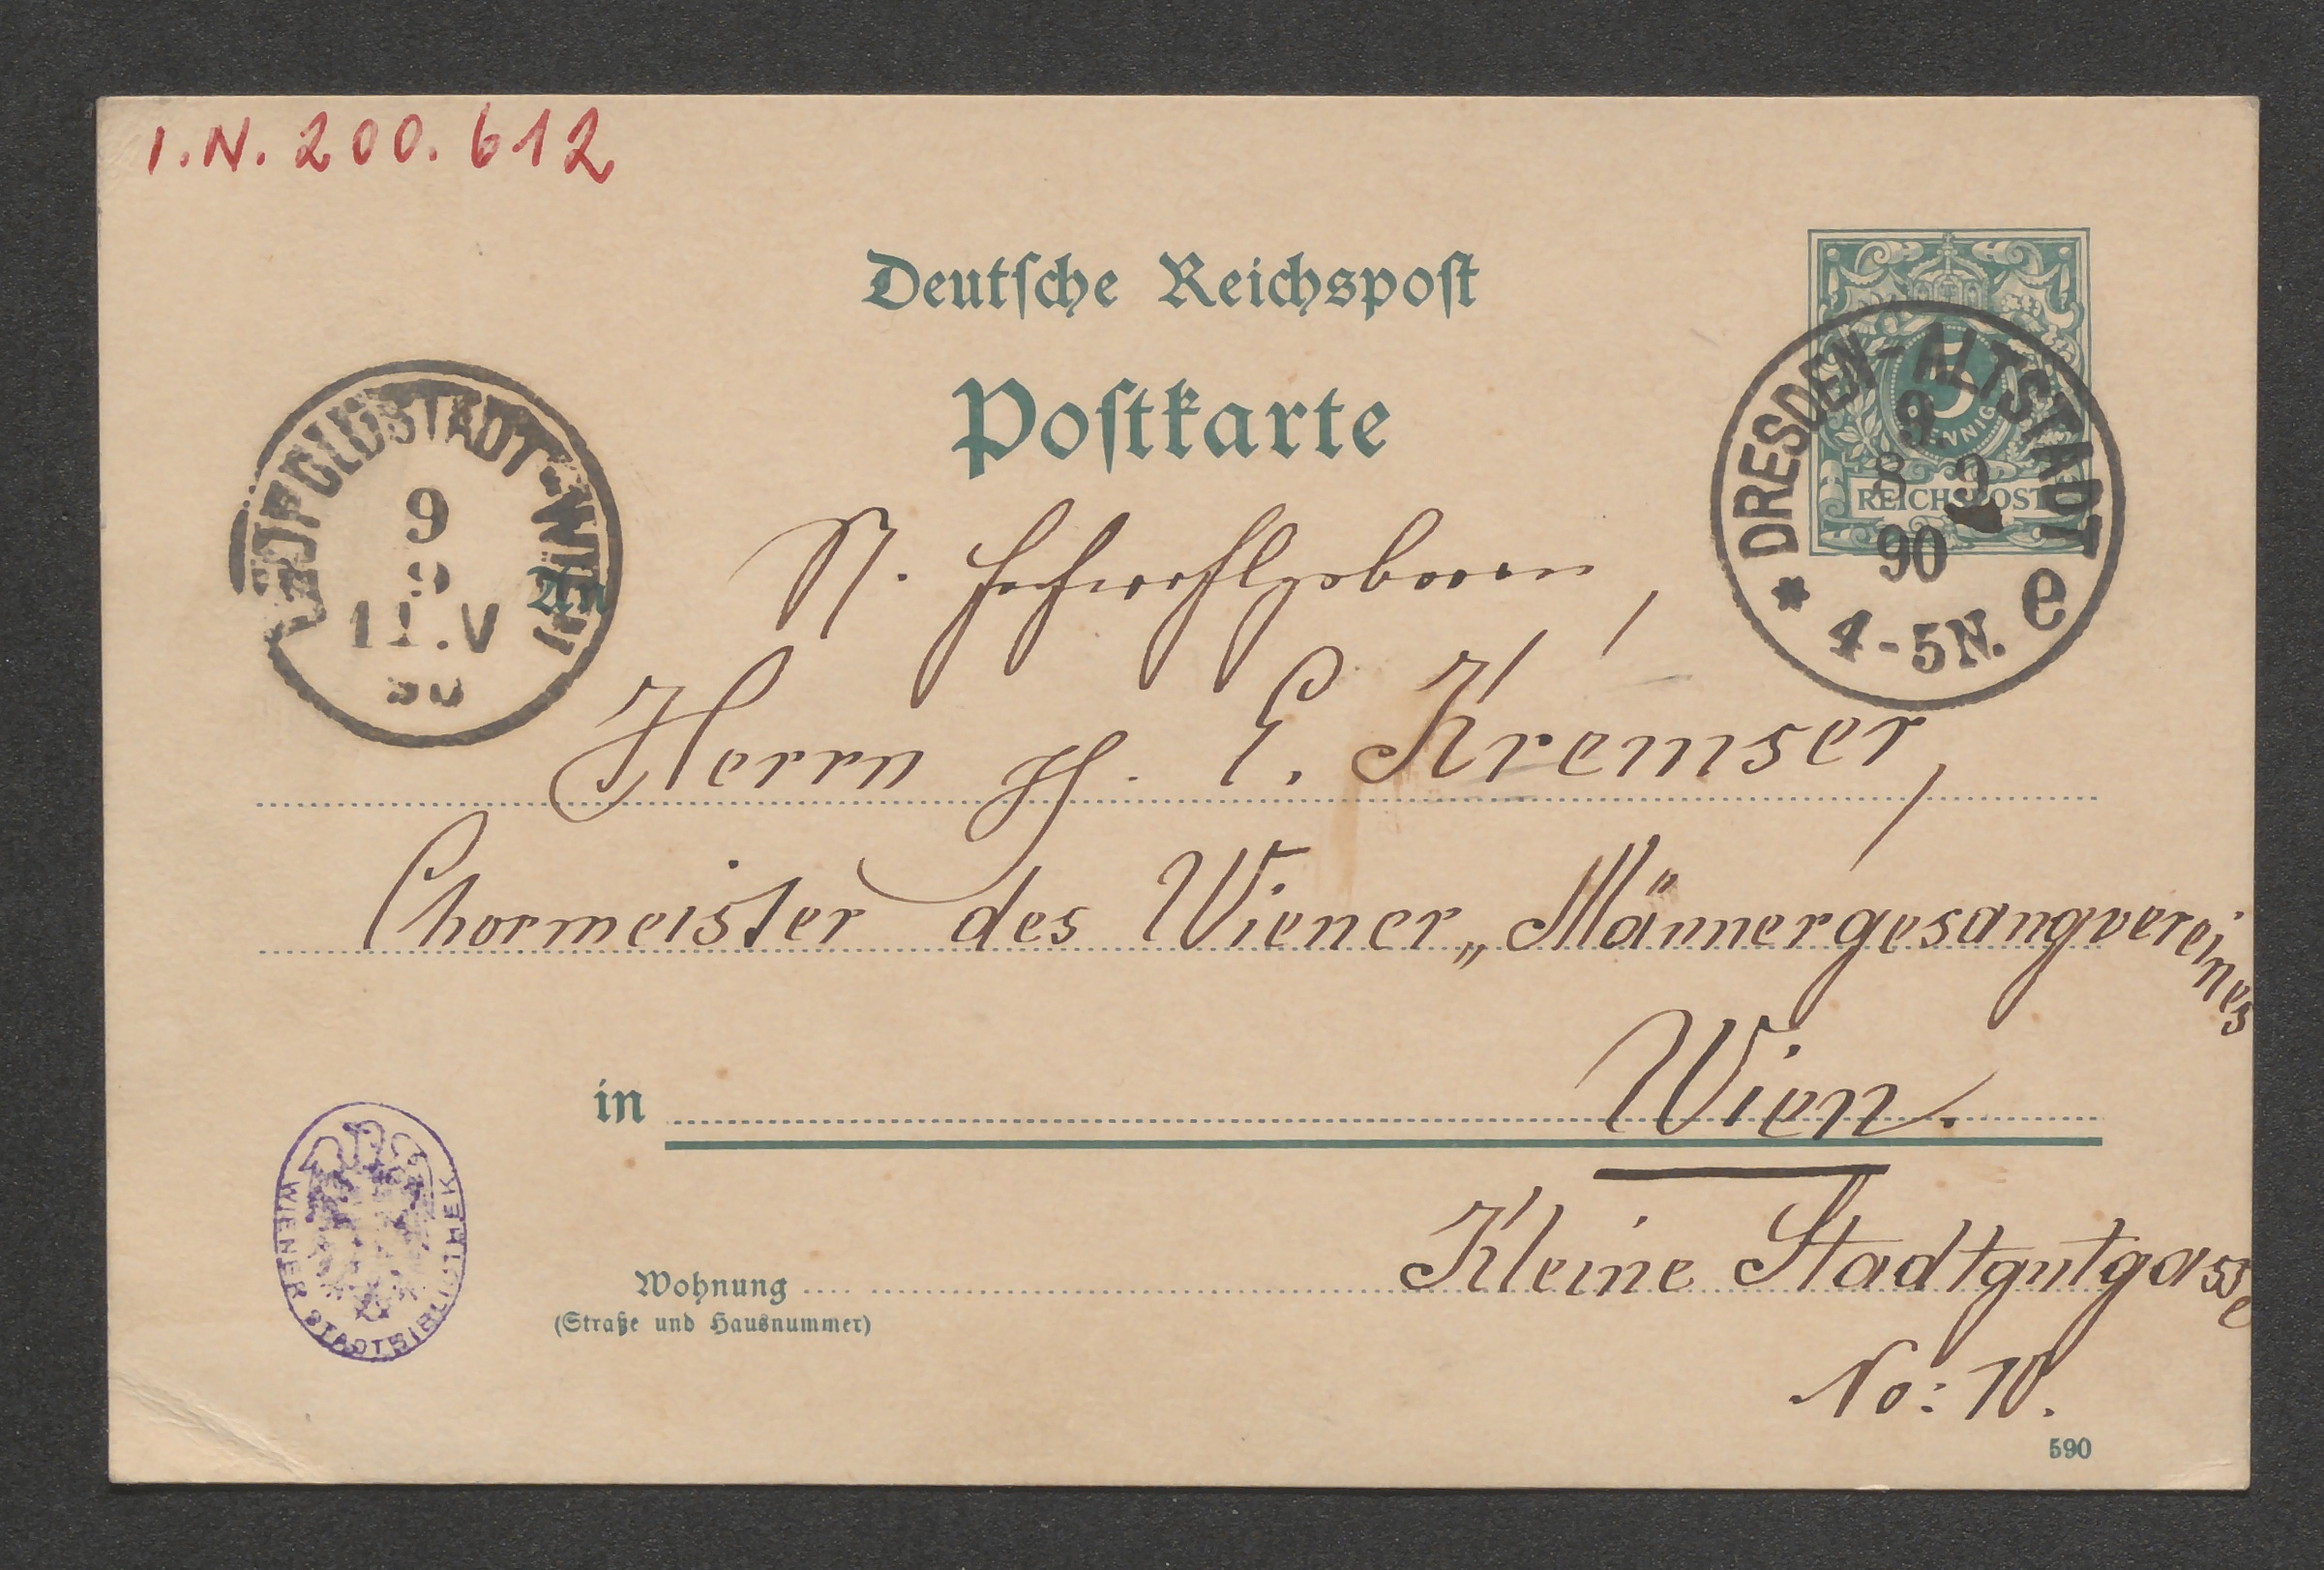 I.N. 200.612
Deutsche Reichspost
Postkarte
5
PFENNIG
REICHSPOST
DRESDEN-ALTSTADT
9.
8 9
90
* 4-5N. e
LEOPOLDSTADT·WIEN
9
9
11.V
90
An
Hochwohlgeboren,
Herrn H. E. Kremser,
Chormeister des Wiener „Männergesangvereines"
in Wien.
Wohnung Kleine Stadtgutgasse
(Straße und Hausnummer)
No: 10.
590
WIENER STADTBIBLIOTHEK